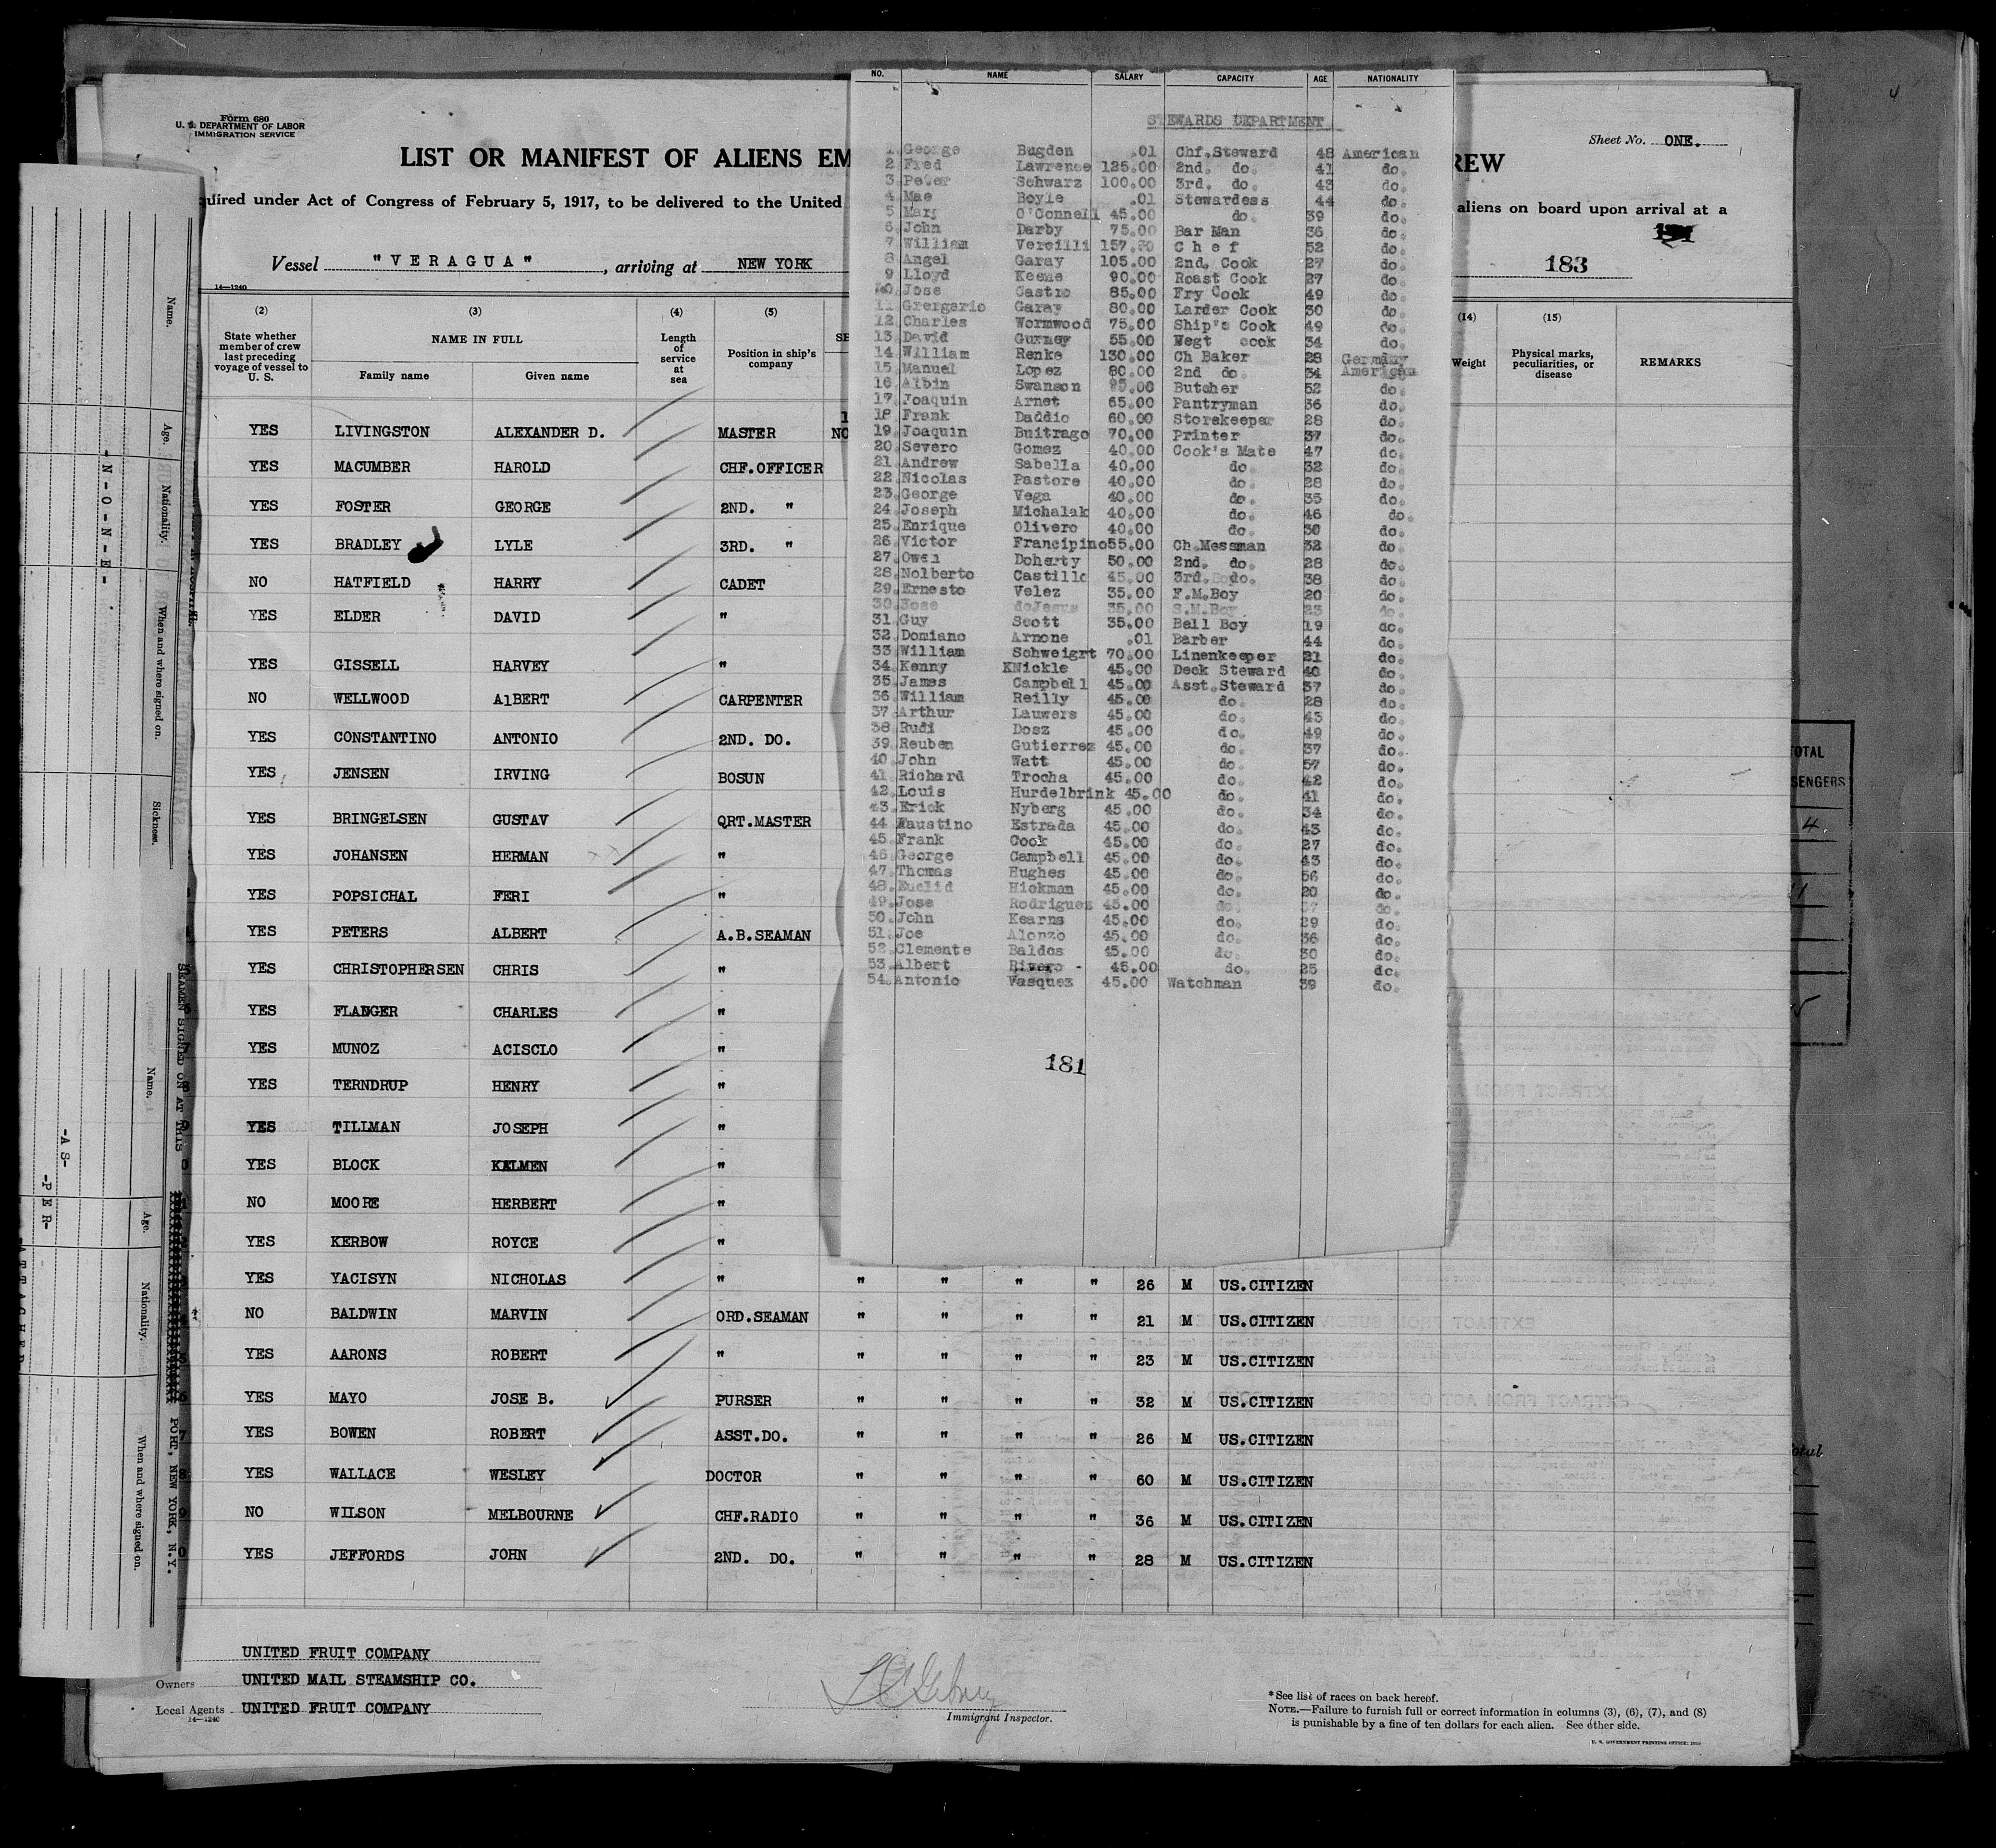 Form 680
U. S. DEPARTMENT OF LABOR
IMMIGRATION SERVICE
Sheet No. ONE.
LIST OR MANIFEST OF ALIENS EM
REW
quired under Act of Congress of February 5, 1917, to be delivered to the United
aliens on board upon arrival at a
Vessel "VERAGUA", arriving at NEW YORK
183
14—1240
(2) (3) (4) (5) (14) (15)
State whether member of crew last preceding voyage of vessel to U. S.
NAME IN FULL
Family name Given name
Length of service at sea
Position in ship's company
Weight
Physical marks, peculiarities, or disease
REMARKS
YES LIVINGSTON ALEXANDER D. MASTER
YES MACUMBER HAROLD CHF.OFFICER
YES FOSTER GEORGE 2ND. "
YES BRADLEY LYLE 3RD. "
NO HATFIELD HARRY CADET
YES ELDER DAVID "
YES GISSELL HARVEY "
NO WELLWOOD AlBERT CARPENTER
YES CONSTANTINO ANTONIO 2ND. DO.
YES JENSEN IRVING BOSUN
YES BRINGELSEN GUSTAV QRT.MASTER
YES JOHANSEN HERMAN "
YES POPSICHAL FERI "
YES PETERS ALBERT A.B.SEAMAN
YES CHRISTOPHERSEN CHRIS "
YES FLANGER CHARLES "
YES MUNOZ ACISCLO "
YES TERNDRUP HENRY "
YES TILLMAN JOSEPH "
YES BLOCK KALMEN "
NO MOORE HERBERT "
YES KERBOW ROYCE "
YES YACISYN NICHOLAS " " " " " 26 M US.CITIZEN
NO BALDWIN MARVIN ORD.SEAMAN " " " " 21 M US.CITIZEN
YES AARONS ROBERT " " " " " 23 M US.CITIZEN
YES MAYO JOSE B. PURSER " " " " 32 M US.CITIZEN
YES BOWEN ROBERT ASST.DO. " " " " 26 M US.CITIZEN
YES WALLACE WESLEY DOCTOR " " " " 60 M US.CITIZEN
NO WILSON MELBOURNE CHF.RADIO " " " " 36 M US.CITIZEN
YES JEFFORDS JOHN 2ND. DO. " " " " 28 M US.CITIZEN
NO. NAME SALARY CAPACITY AGE NATIONALITY
STEWARDS DEPARTMENT
1. George Bugden .01 Chf.Steward 48 American
2 Fred Lawrence 125.00 2nd. do. 41 do.
3. Peter Schwarz 100.00 3rd. do. 43 do.
4. Mae Boyle .01 Stewardess 44 do.
5 Mary O'Connell 45.00 do. 39 do.
6. John Darby 75.00 Bar Man 36 do.
7. William Vercilli 157.50 C h e f 52 do.
8 Angel Garay 105.00 2nd. Cook 27 do.
9 Lloyd Keene 90.00 Roast Cook 27 do.
10. Jose Castro 85.00 Fry Cook 49 do.
11. Grergario Garay 80.00 Larder Cook 30 do.
12. Charles Wormwood 75.00 Ship's Cook 49 do.
13. David Gurney 55.00 Vegt cook 34 do.
14 William Renke 130.00 Ch Baker 28 Germany
15. Manuel Lopez 80.00 2nd do. 34 American
16. Albin Swanson 95.00 Butcher 52 do.
17. Joaquin Arnet 65.00 Pantryman 36 do.
18. Frank Daddio 60.00 Storekeeper 28 do.
19. Joaquin Buitrago 70.00 Printer 37 do.
20. Severo Gomez 40.00 Cook's Mate 47 do.
21. Andrew Sabella 40.00 do 32 do.
22. Nicolas Pastore 40.00 do. 28 do.
23. George Vega 40.00 do. 35 do.
24. Joseph Michalak 40.00 do. 46 do.
25. Enrique Olivero 40.00 do. 30 do.
26. Victor Francipino 55.00 Ch.Messman 32 do.
27. Owen Doherty 50.00 2nd. do. 28 do.
28. Nolberto Castillo 45.00 3rd. do. 38 do.
29. Ernesto Velez 35.00 F.M.Boy 20 do.
30. Jose deJesus 35.00 S.M.Boy 23 do.
31. Guy Scott 35.00 Bell Boy 19 do.
32. Domiano Arnone .01 Barber 44 do.
33 William Schweigrt 70.00 Linenkeeper 21 do.
34. Kenny KNickle 45.00 Deck Steward 40 do.
35. James Campbell 45.00 Asst.Steward 37 do.
36. William Reilly 45.00 do. 28 do.
37. Arthur Lauwers 45.00 do. 43 do.
38. Rudi Dosz 45.00 do. 49 do.
39. Reuben Gutierrez 45.00 do. 37 do.
40. John Watt 45.00 do. 57 do.
41. Richard Trocha 45.00 do. 42 do.
42. Louis Hurdelbrink 45.00 do. 41 do.
43. Erick Nyberg 45.00 do. 34 do.
44. Faustino Estrada 45.00 do. 43 do.
45. Frank Cook 45.00 do. 27 do.
46. George Campbell 45.00 do. 43 do.
47. Thomas Hughes 45.00 do. 56 do.
48. Euclid Hickman 45.00 do. 20 do.
49. Jose Rodriguez 45.00 do. 37 do.
50. John Kearns 45.00 do. 29 do.
51. Joe Alonzo 45.00 do. 36 do.
52. Clemente Baldos 45.00 do. 30 do.
53. Albert Rivero - 45.00 do. 25 do.
54. Antonio Vasquez 45.00 Watchman 39 do.
181
Name. Age. Nationality. When and where signed on. Sickness.
-N-O-N-E-
Name. Age. Nationality. When and where signed on.
-AS-
-PER-
ATTACHED
SEAMEN SIGNED ON AT THIS
PORT, NEW YORK, N.Y.
TOTAL
SENGERS
4
UNITED FRUIT COMPANY
Owners UNITED MAIL STEAMSHIP CO.
Local Agents UNITED FRUIT COMPANY
14—1240
Immigrant Inspector.
*See list of races on back hereof.
NOTE.—Failure to furnish full or correct information in columns (3), (6), (7), and (8)
is punishable by a fine of ten dollars for each alien. See other side.
U. S. GOVERNMENT PRINTING OFFICE: